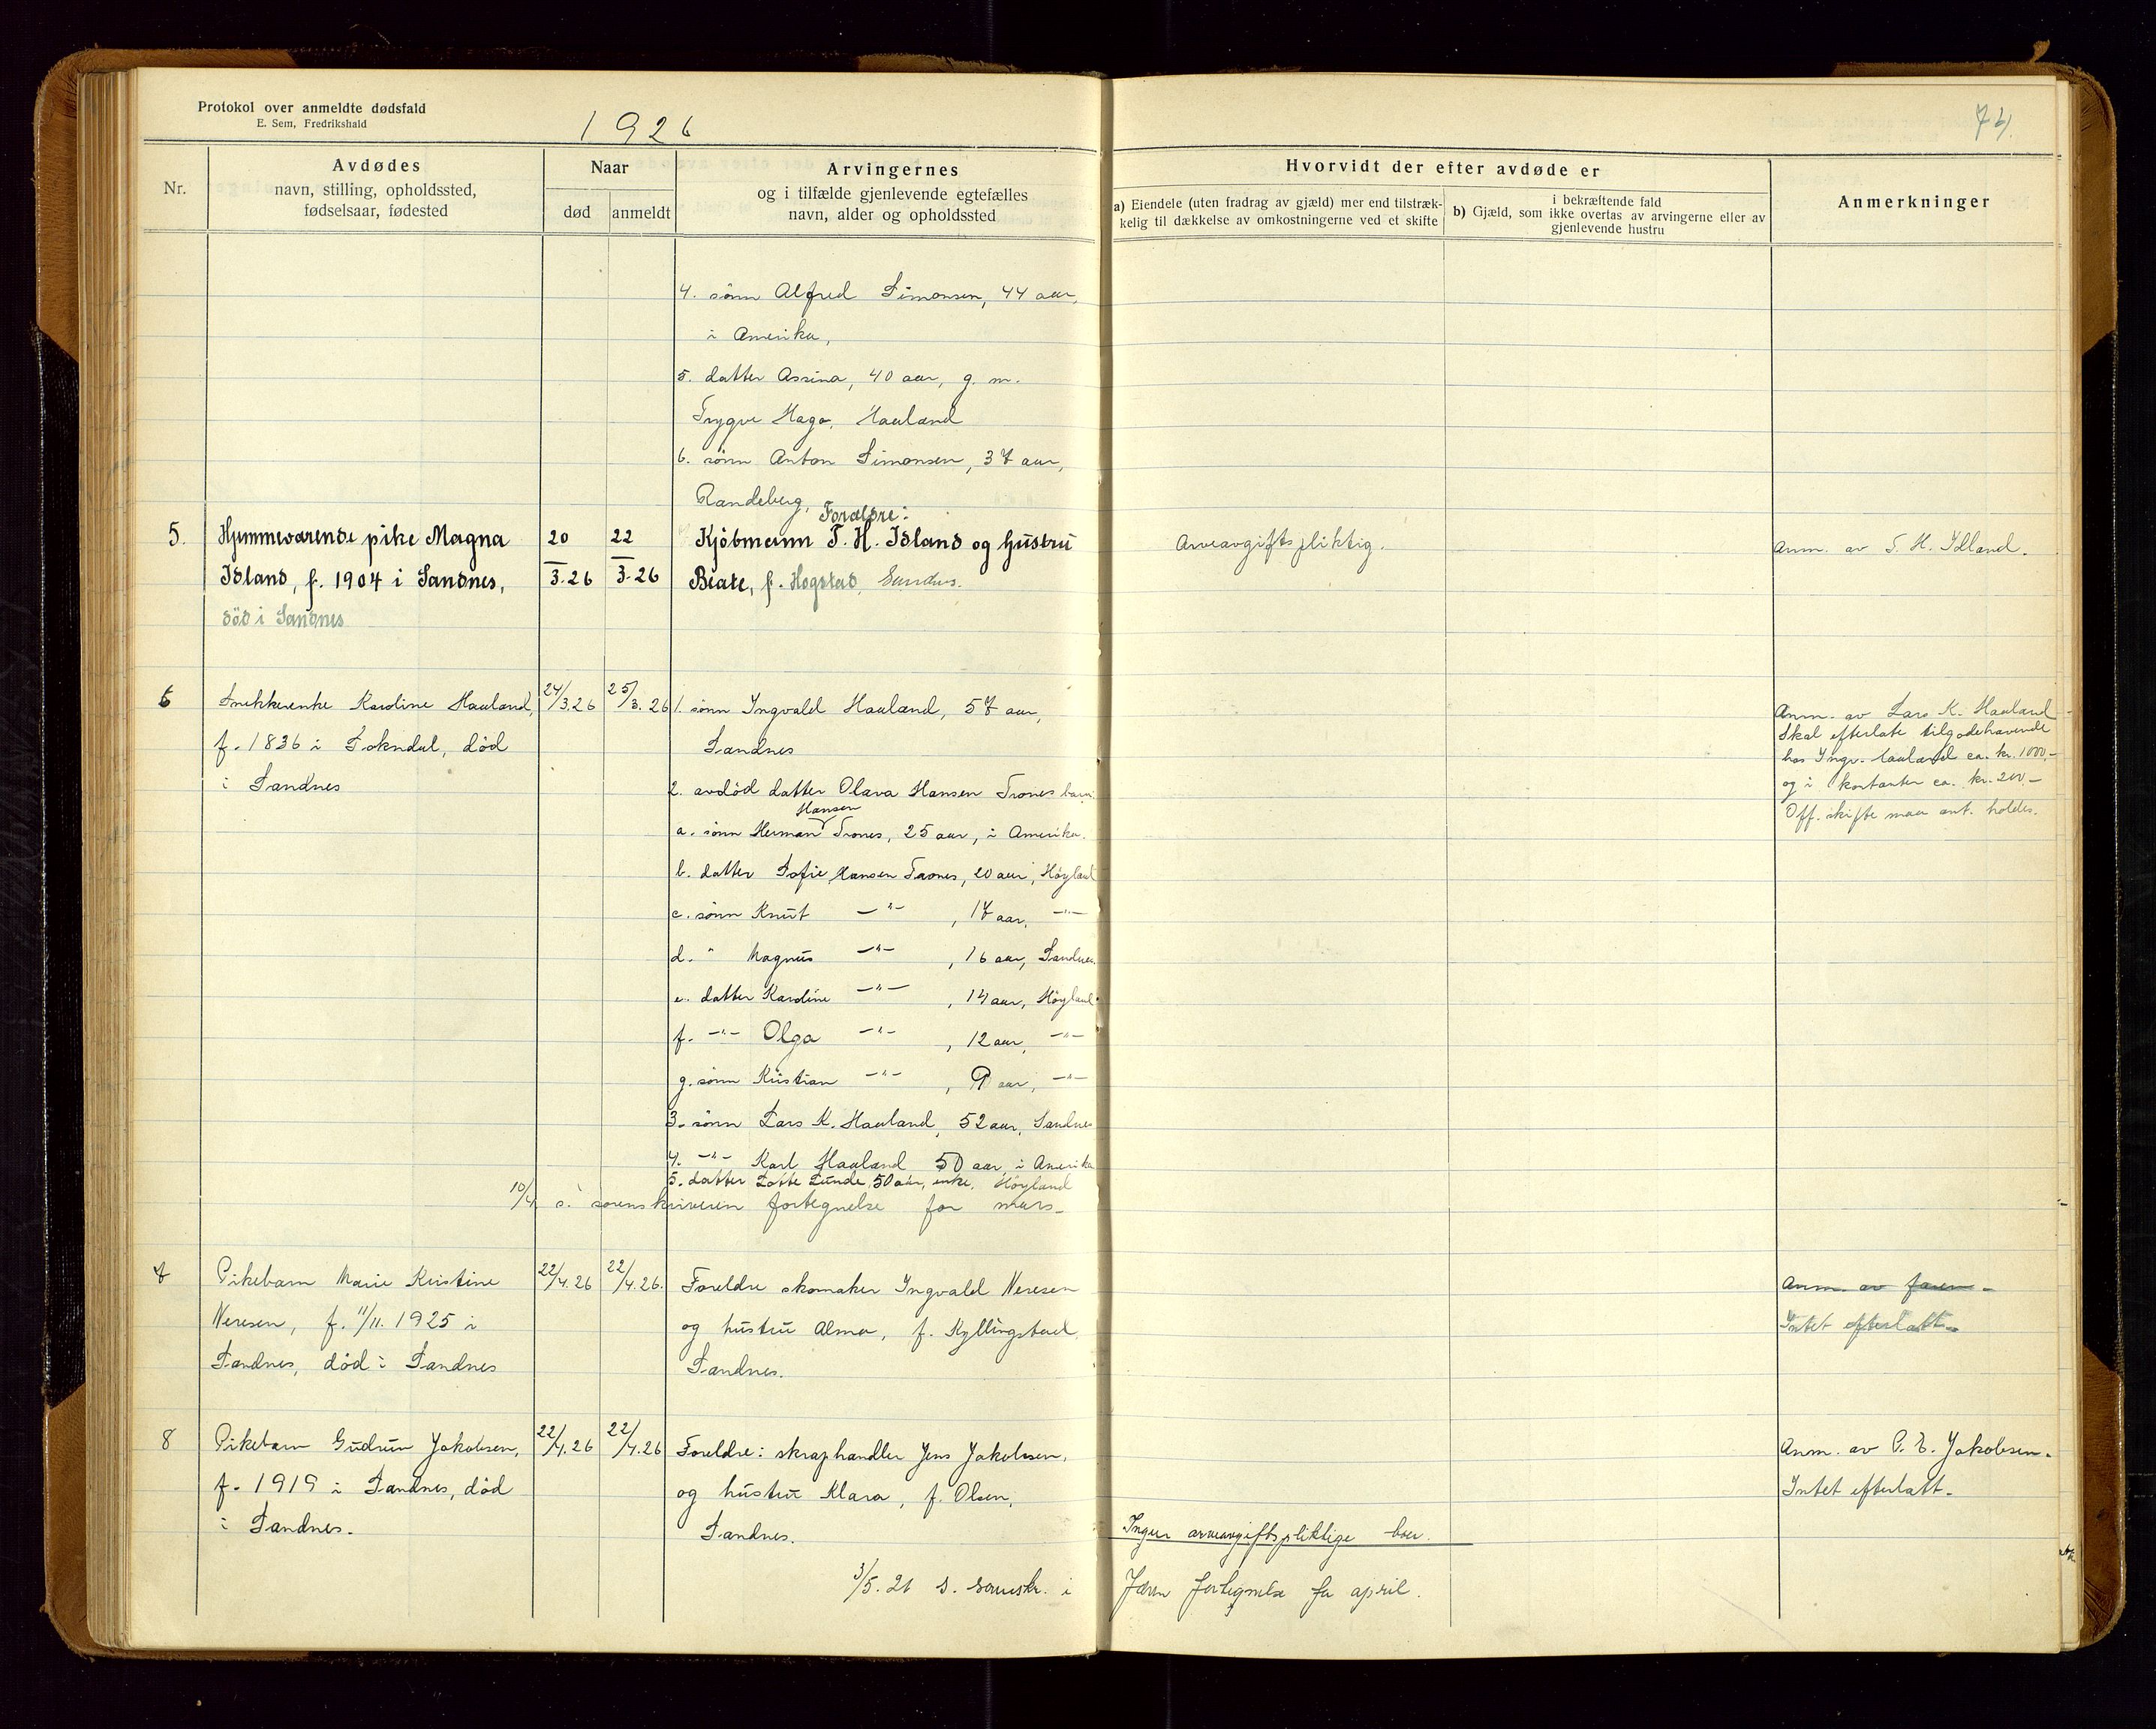 Protokol over anmeldte dødsfald
E. Sem, Fredrikshald
1926
Nr.
Avdødes
navn, stilling, opholdssted,
fødselsaar, fødested
Naar
død
anmeldt
Arvingernes
og i tilfælde gjenlevende egtefælles
navn, alder og opholdssted
Hvorvidt der efter avdøde er
a) Eiendele (uten fradrag av gjæld) mer end tilstræk-
kelig til dækkelse av omkostningerne ved et skifte
i bekræftende fald
b) Gjæld, som ikke overtas av arvingerne eller av
gjenlevende hustru
Anmerkninger
4. sønn Alfred Simonsen, 44 aar,
i Amerika,
5. datter Assina, 40 aar, g. m.
Trygve Haga, Haaland
6. sønn Anton Simonsen, 37 aar,
Randeberg,
5.
Hjemmeværende pike Magna
Idland, f. 1904 i Sandnes,
død i Sandnes
20
3.26
22
3.26
Forældre:
Kjøbmann T. H. Idland og hustru
Beate, f. Hogstad, Sandnes.
Arveavgiftspliktig.
Anm. av T. H. Idland.
6
Snekkerenke Karoline Haaland,
f. 1836 i Sokndal, død
i Sandnes
24/3.26
25/3.26
1. sønn Ingvald Haaland, 57 aar,
Sandnes
2. avdød datter Olava Hansen Trones barn:
Hansen
a. sønn Herman Trones, 25 aar, i Amerika.
b. datter Sofie Hansen Trones, 20 aar, Høyland
c. sønn Knut —"— , 17 aar, —"—
d. " Magnus —"— , 16 aar, Sandnes.
e. datter Karoline —"— , 14 aar, Høyland
f. —"— Olga —"— , 12 aar, —"—
g. sønn Kristian —"— , 9 aar, —"—
3. sønn Lars K. Haaland, 52 aar, Sandnes
4. —"— Karl Haaland, 50 aar, i Amerika
5. datter Lotte Lunde, 50 aar, enke, Høyland
10/4 s. sorenskriveren fortegnelse for mars.
Anm. av Lars K. Haaland
Skal efterlate tilgodehavende
hos Ingv. Haaland ca. kr. 1000,-
og i kontanter ca. kr. 200.-
Off. skifte maa ant. holdes.
7
Pikebarn Marie Kristine
Neresen, f. 11/11. 1925 i
Sandnes, død i Sandnes
22/4.26
22/4.26.
Foreldre skomaker Ingvald Neresen
og hustru Alma, f. Kyllingstad,
Sandnes.
Anm. av faren.
Intet efterlatt.
8
Pikebarn Gudrun Jakobsen,
f. 1919 i Sandnes, død
i Sandnes.
22/4.26
22/4.26
Foreldre: skraphandler Jens Jakobsen,
og hustru Klara, f. Olsen,
Sandnes.
Anm. av P. E. Jakobsen.
Intet efterlatt.
Ingen arveavgiftspliktige boer.
3/5. 26 s. sorenskr. i Jæren fortegnelse for april.